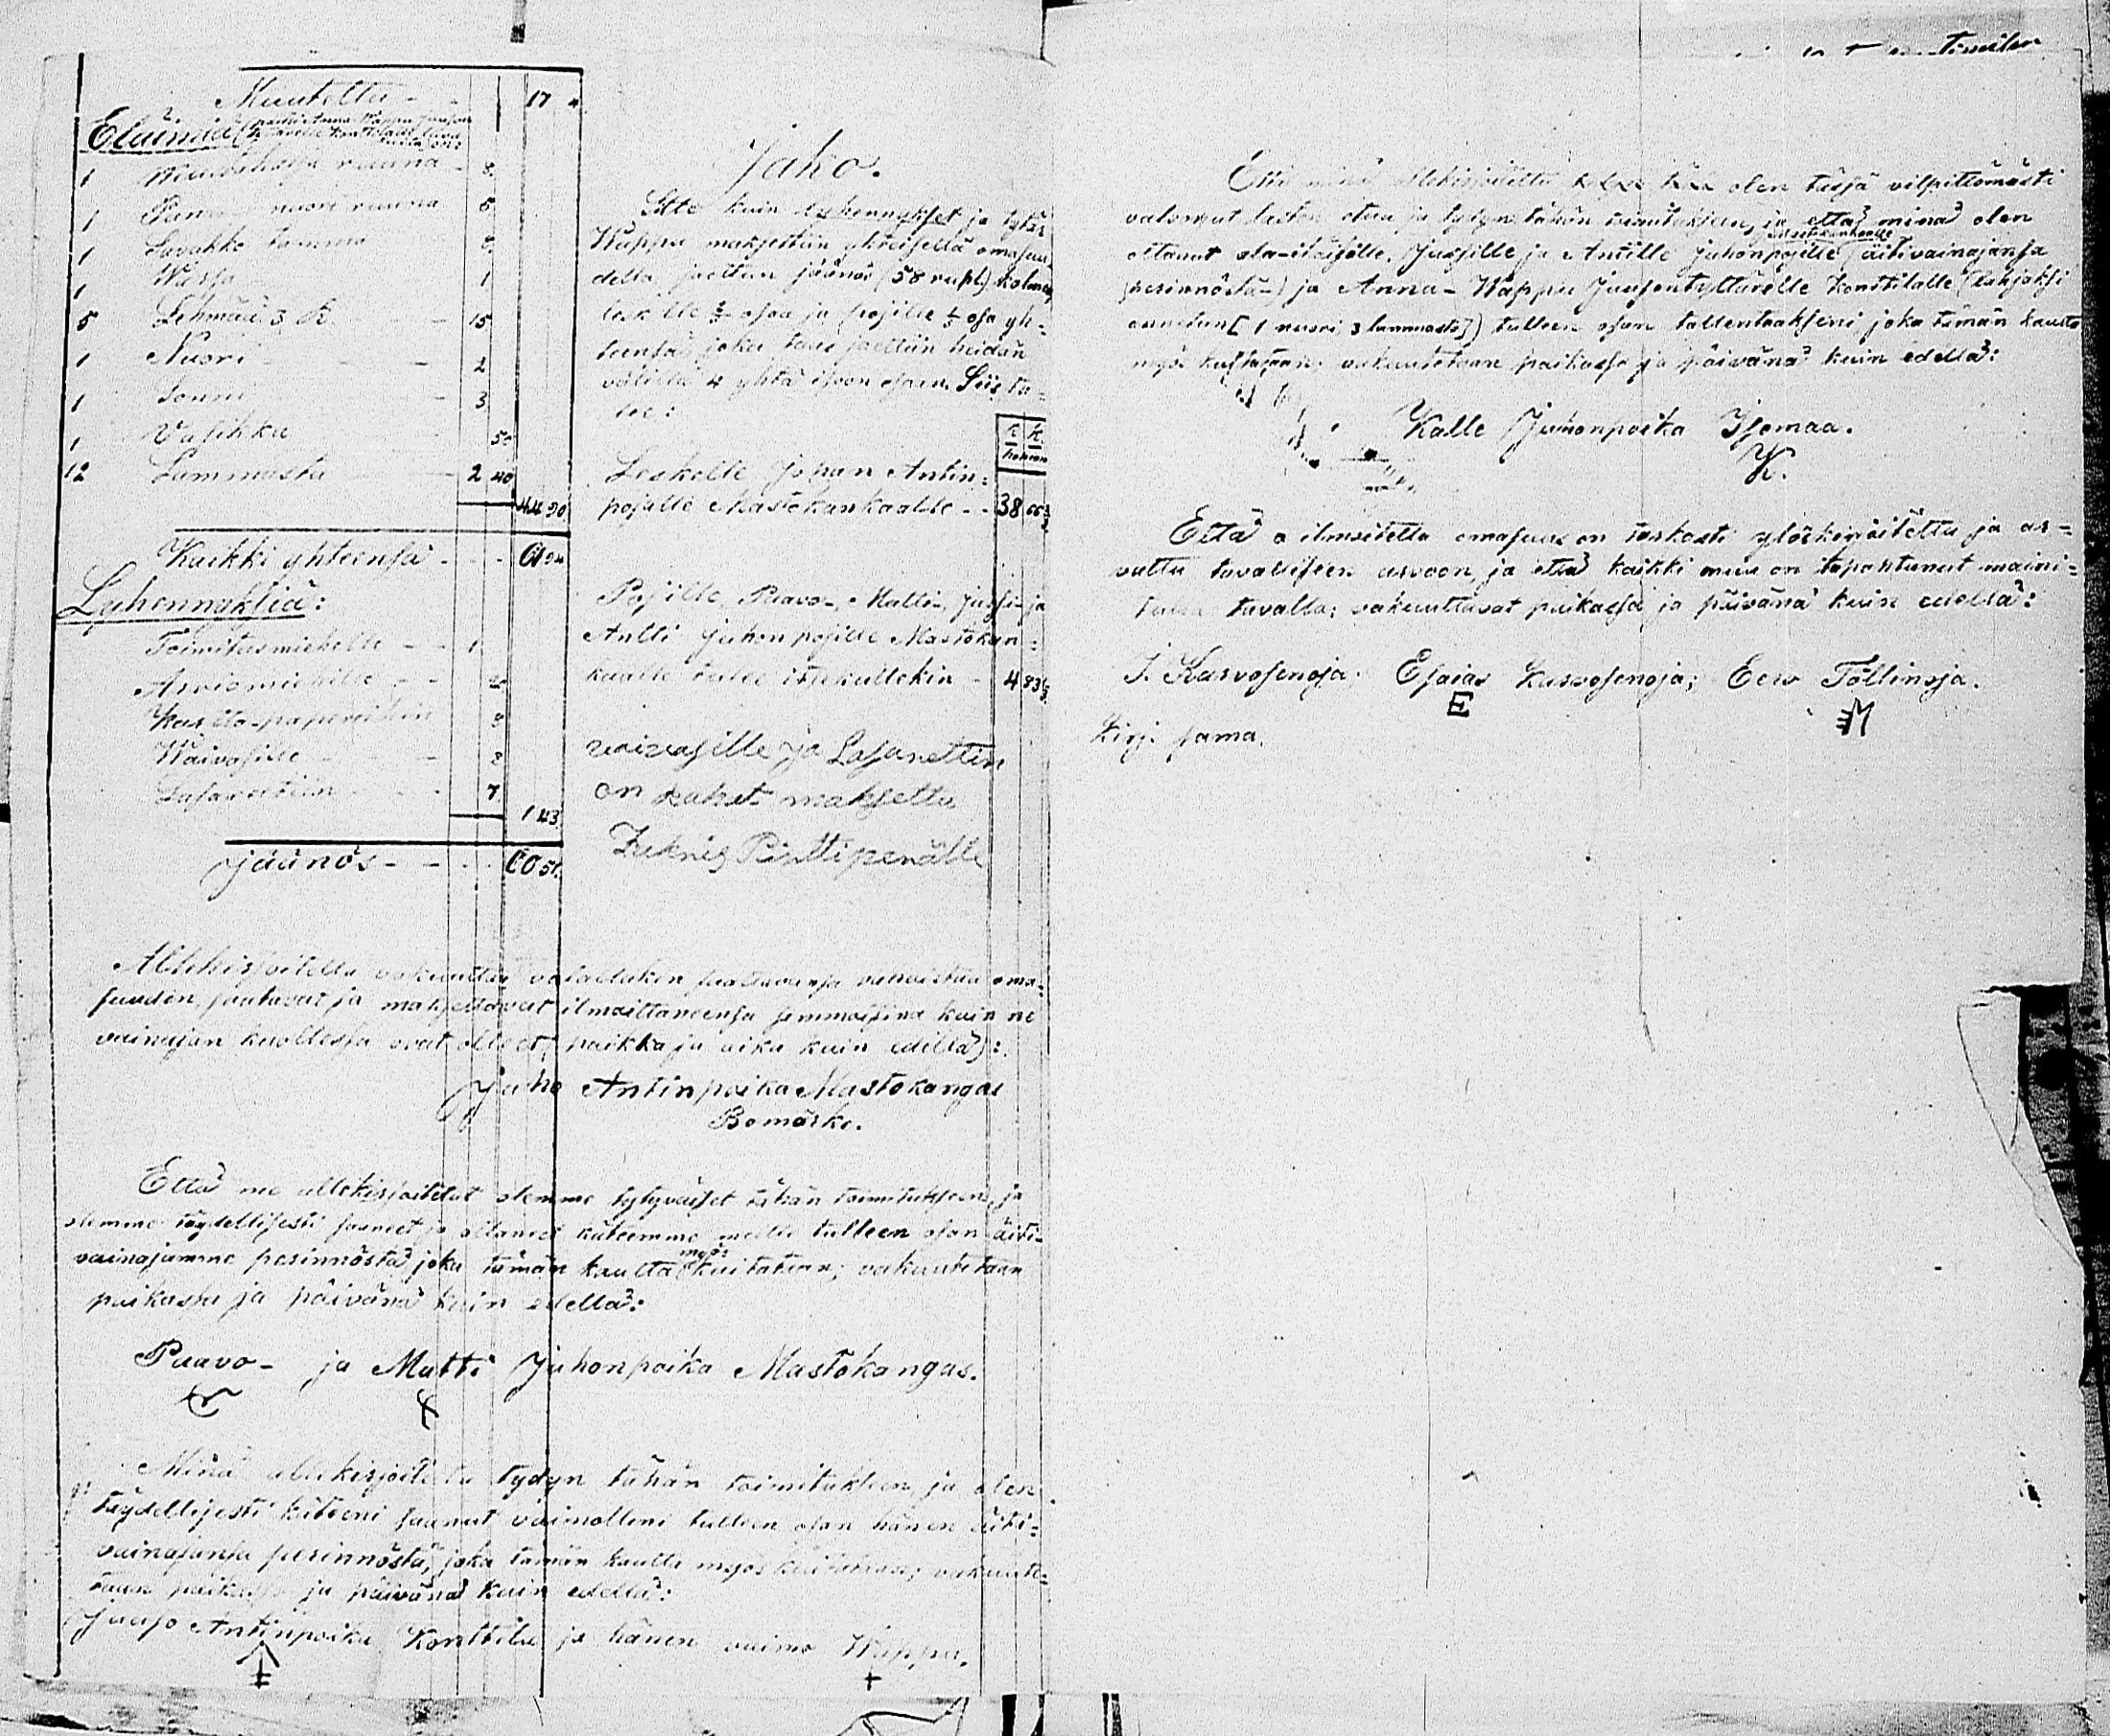 Muutettu - - 17 "
Eläimiä (paitsi Anna Wappu Juuson
tyttärelle Konttilalle
1 ruuna - 8
1 nuori ruuna 8
1 Savakko tamma 8
1 Warsa 1
5 Lehmää 3 R. - - 15
1 Nuori - - 2
1 Sonni - 3
1 Vasikka 50
12 Lammasta - 2 40
44 90
Kaikki yhteensä - - - 61 94
Lyhennyksiä:
Toimitusmiehelle - - 1
Arviomiehille - -
Kartta-papereihin
Waivasille - - -
Lasarettiin - - - 7
1 43
Jäännös - - - - 60 51.
Jako.
Sitte kuin lyhennykset ja tytär
Wappu maksettiin yhteisellä omaisuu-
della, jaettiin jäänös (58 rupl.) kolmeen,
leskelle 2/3 osaa ja pojille 1/3 osa yh-
teensä, joka taas jaettiin heidän
välillä 4 yhtä isoon osaan. Siis tu-
lee:
R. K.
hopeaa
Leskelle Johan Antin=
pojalle Mastokankaalle - - 38 66 2/3
Pojille, Paavo-, Matti-, Jussi- ja
Antti Juhonpojille Mastokan=
kaalle tulee itsekullekin - 4 83 1/3
vaivasille ja Lasarettin
on rahat maksettu
Pinttiperälle
Allekirjoitettu vakuuttaa valallakin saattavansa vahvistaa oma=
suuden, saatavat ja maksettavat ilmoittaneensa semmoisina kuin ne
vainajan kuollessa ovat olleet, (paikka ja aika kuin edellä):
Juho Antinpoika Mastokangas
Bomärke.
Että me allekirjoitetut olemme tytyväiset tähän toimitukseen, ja
olemme täydellisesti saaneet ja ottaneet käteemme meille tulleen osan äiti-
vainajamme perinnöstä, joka tämän kautta myös kuitataan; vakuutetaan
paikassa ja päivänä kuin edellä:
Paavo- ja Matti Juhonpoika Mastokangas.
Minä allekirjoitettu tydyn tähän toimitukseen, ja olen
täydellisesti käteeni saanut vaimolleni tulleen osan hänen äiti=
vainajansa perinnöstä, joka tämän kautta myös kuitataan; vakuute-
taan paikassa ja päivänä kuin edellä:
Juuso Antinpoika Konttila ja hänen vaimo Wappu.
+
Että minä allekirjoitettu olen täsjä vilpittömästi
valvonut lasten etua ja tydyn tähän toimitukseen, ja että minä olen
ottanut ala-ikäisille, Jussille ja Antille Juhonpojille Mastokankaalle (äitivainajansa
perinnöstä-) ja Anna-Wappu Juusontyttärelle Konttilalle (lahjaksi
annetun [1 nuori, 3 lammasta]) tulleen osan tallentaakseni joka tämän kautta
myös kuitataan; vakuutetaan paikassa ja päivänä kuin edellä:
Kalle Juhonpoika Isomaa.
K.
Että ilmoitettu omasuus on tarkasti ylöskirjoitettu ja ar=
vattu tavalliseen arvoon, ja että kaikki muu on tapahtunut maini=
tulla tavalla; vakuuttavat paikassa ja päivänä kuin edellä:
J. Karvosenoja; Esaias Karvosenoja; Eero Töllinoja.
E
Kirj. sama.